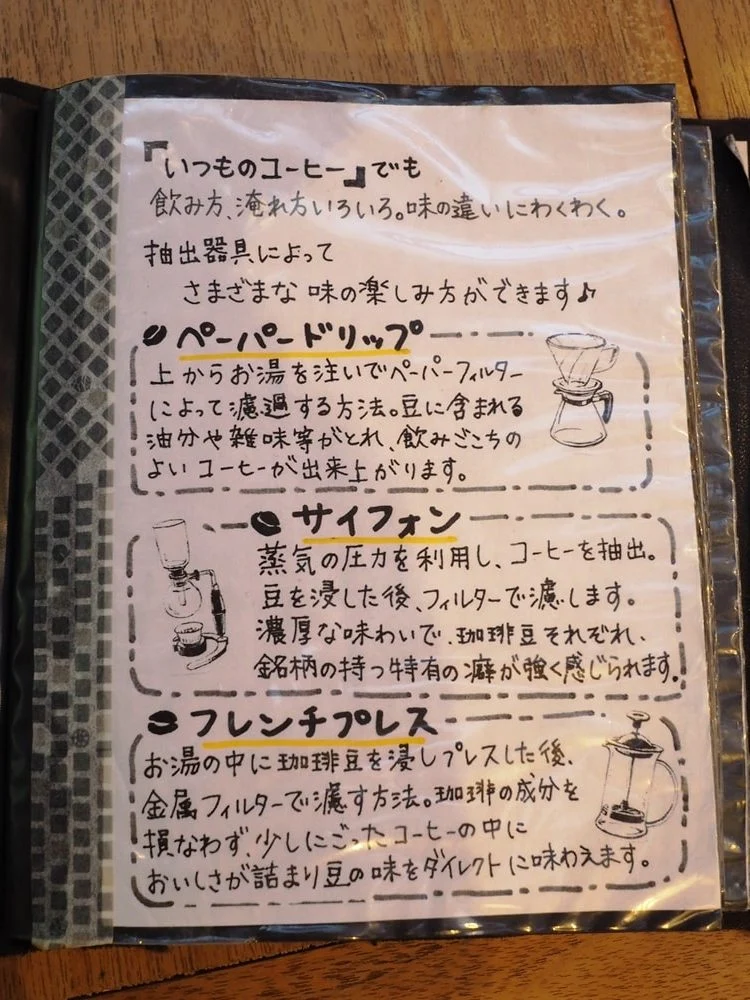 『いつものコーヒー』でも
飲み方、淹れ方いろいろ。味の違いにわくわく。
抽出器具によって
さまざまな味の楽しみ方ができます♪
ペーパードリップ
上からお湯を注いでペーパーフィルター
によって濾過する方法。豆に含まれる
油分や雑味等がとれ、飲みごこちの
よいコーヒーが出来上がります。
サイフォン
蒸気の圧力を利用し、コーヒーを抽出。
豆を浸した後、フィルターで濾します。
濃厚な味わいで、珈琲豆それぞれ、
銘柄の持つ特有の癖が強く感じられます。
フレンチプレス
お湯の中に珈琲豆を浸しプレスした後、
金属フィルターで濾す方法。珈琲の成分を
損なわず、少しにごったコーヒーの中に
おいしさが詰まり豆の味をダイレクトに味わえます。